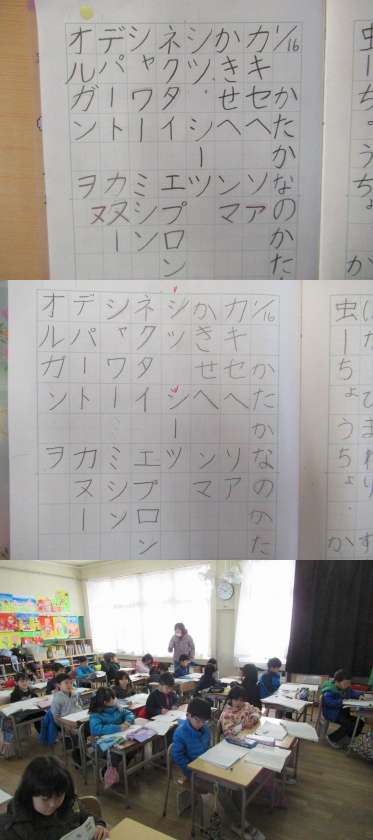 1/16 かたかなのかた
カキセヘ ソア
かきせへ ンマ
シツ シーツ
ネクタイ エプロン
シャワー ミシン
デパート カヌー
オルガン ヲヌ
虫ーちょうちょ
か
1/16 かたかなのかた
カキセヘ ソア
かきせへ ンマ
シツ シーツ
ネクタイ エプロン
シャワー ミシン
デパート カヌー
オルガン ヲ
ひまわり す
虫ーちょうちょ か